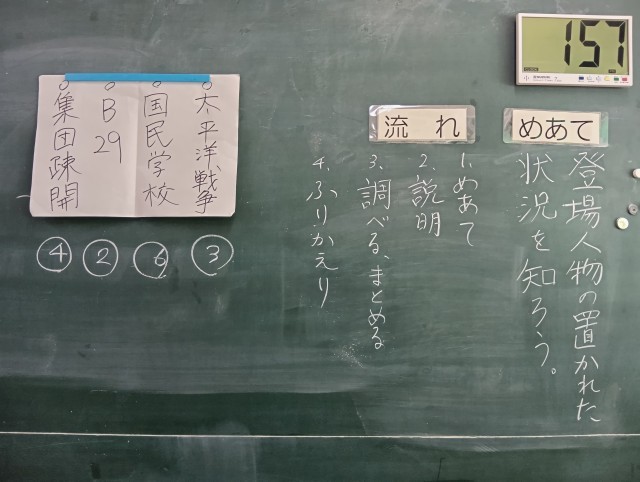 157
めあて
登場人物の置かれた
状況を知ろう。
流れ
1.めあて
2.説明
3.調べる、まとめる
4.ふりかえり
○太平洋戦争
○国民学校
○B29
○集団疎開
③
⑥
②
④